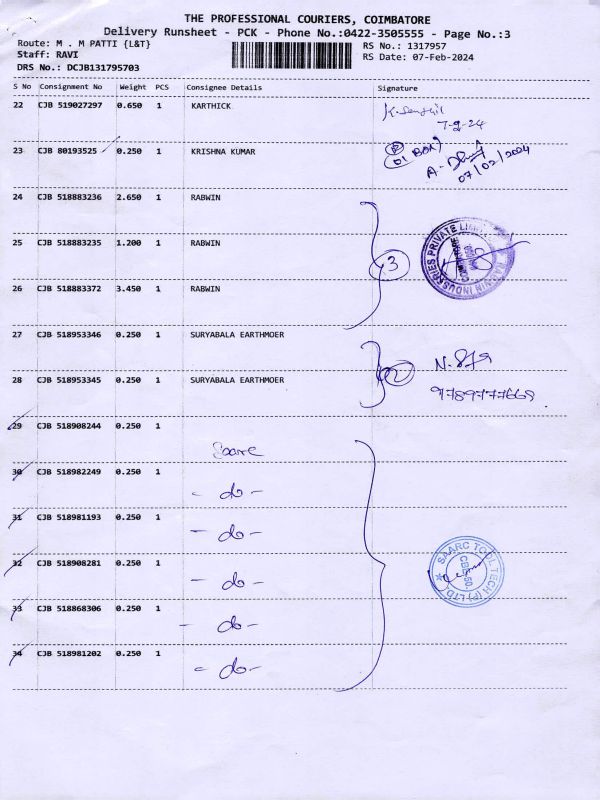 THE PROFESSIONAL COURIERS, COIMBATORE
Delivery Runsheet - PCK - Phone No.:0422-3505555 - Page No.:3
Route: M . M PATTI {L&T}
Staff: RAVI
DRS No.: DCJB131795703
RS No.: 1317957
RS Date: 07-Feb-2024
S No Consignment No Weight PCS Consignee Details Signature
22 CJB 519027297 0.650 1 KARTHICK
7-2-24
23 CJB 80193525 0.250 1 KRISHNA KUMAR
01 BOX
07/02/2024
24 CJB 518883236 2.650 1 RABWIN
25 CJB 518883235 1.200 1 RABWIN
3
RABWIN INDUSTRIES PRIVATE LIMITED
26 CJB 518883372 3.450 1 RABWIN
27 CJB 518953346 0.250 1 SURYABALA EARTHMOER
2
28 CJB 518953345 0.250 1 SURYABALA EARTHMOER
9789777669
29 CJB 518908244 0.250 1
Saarc
30 CJB 518982249 0.250 1
- do -
31 CJB 518981193 0.250 1
- do -
32 CJB 518908281 0.250 1
- do -
SAARC TOOL TECH (P) LTD
33 CJB 518868306 0.250 1
- do -
34 CJB 518981202 0.250 1
- do -